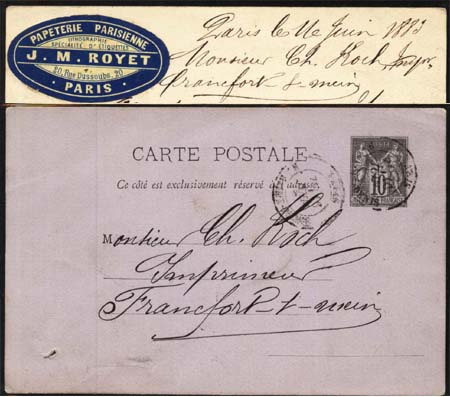 PAPETERIE PARISIENNE
LITHOGRAPHIE
SPÉCIALITÉ D'ÉTIQUETTES
J. M. ROYET
20, Rue Dussoubs, 20
PARIS
Paris le 16 Juin 1883
Monsieur Ch. Koch, Impr.
Francfort-s-mein
CARTE POSTALE
Ce côté est exclusivement réservé à l'adresse
10
Monsieur Ch. Koch
Imprimeur
Francfort-s-mein